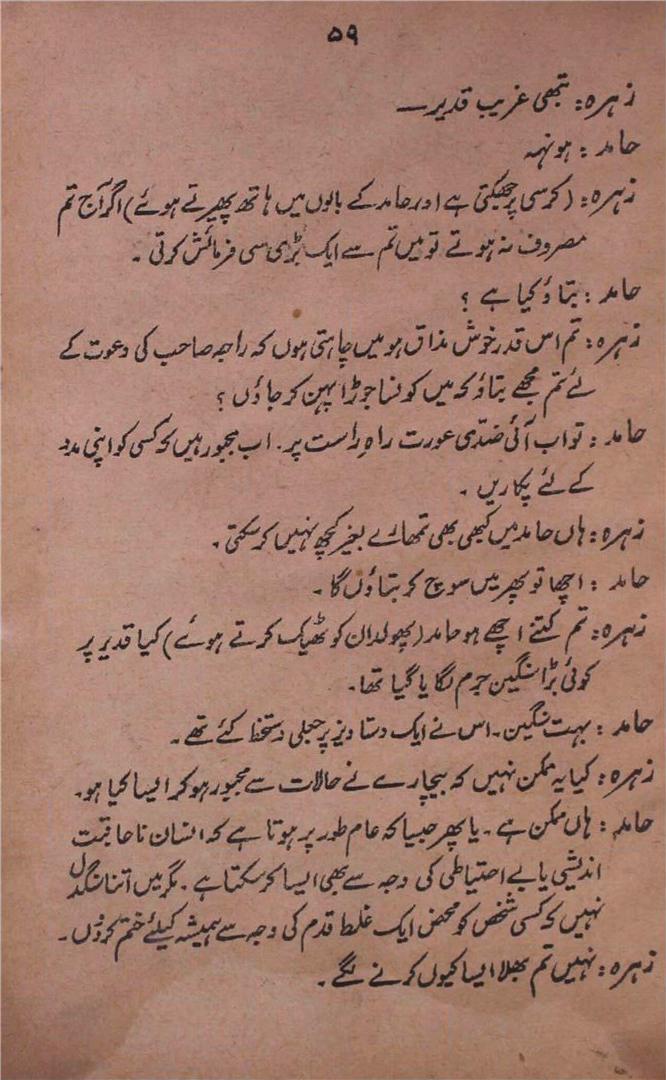 ۵۹
زہرہ: تبھی غریب قدیر —
حامد: ہونہہ
زہرہ: (کرسی پر جھکتی ہے اور حامد کے بالوں میں ہاتھ پھیرتے ہوئے) اگر آج تم
مصروف نہ ہوتے تو میں تم سے ایک بڑی سی فرمائش کرتی۔
حامد: بتاؤ کیا ہے؟
زہرہ: تم اس قدر خوش مذاق ہو میں چاہتی ہوں کہ راجہ صاحب کی دعوت کے
لئے تم مجھے بتاؤ کہ میں کونسا جوڑا پہن کر جاؤں؟
حامد: تو اب آئی ضدّی عورت راہِ راست پر۔ اب مجبور ہیں کہ کسی کو اپنی مدد
کے لئے پکاریں۔
زہرہ: ہاں حامد میں کبھی بھی تمھارے بغیر کچھ نہیں کر سکتی۔
حامد: اچھا تو پھر میں سوچ کر بتاؤں گا۔
زہرہ: تم کتنے اچھے ہو حامد (پھولدان کو ٹھیک کرتے ہوئے) کیا قدیر پر
کوئی بڑا سنگین جرم لگایا گیا تھا۔
حامد: بہت سنگین۔ اس نے ایک دستاویز پر جعلی دستخط کئے تھے۔
زہرہ: کیا یہ ممکن نہیں کہ بیچارے نے حالات سے مجبور ہو کر ایسا کیا ہو۔
حامد: ہاں ممکن ہے۔ یا پھر جیسا کہ عام طور پر ہوتا ہے کہ انسان ناعاقبت
اندیشی یا بے احتیاطی کی وجہ سے بھی ایسا کر سکتا ہے۔ مگر میں اتنا سنگدل
نہیں کہ کسی شخص کو محض ایک غلط قدم کی وجہ سے ہمیشہ کیلئے ختم کر دوں۔
زہرہ: نہیں تم بھلا ایسا کیوں کرنے لگے۔